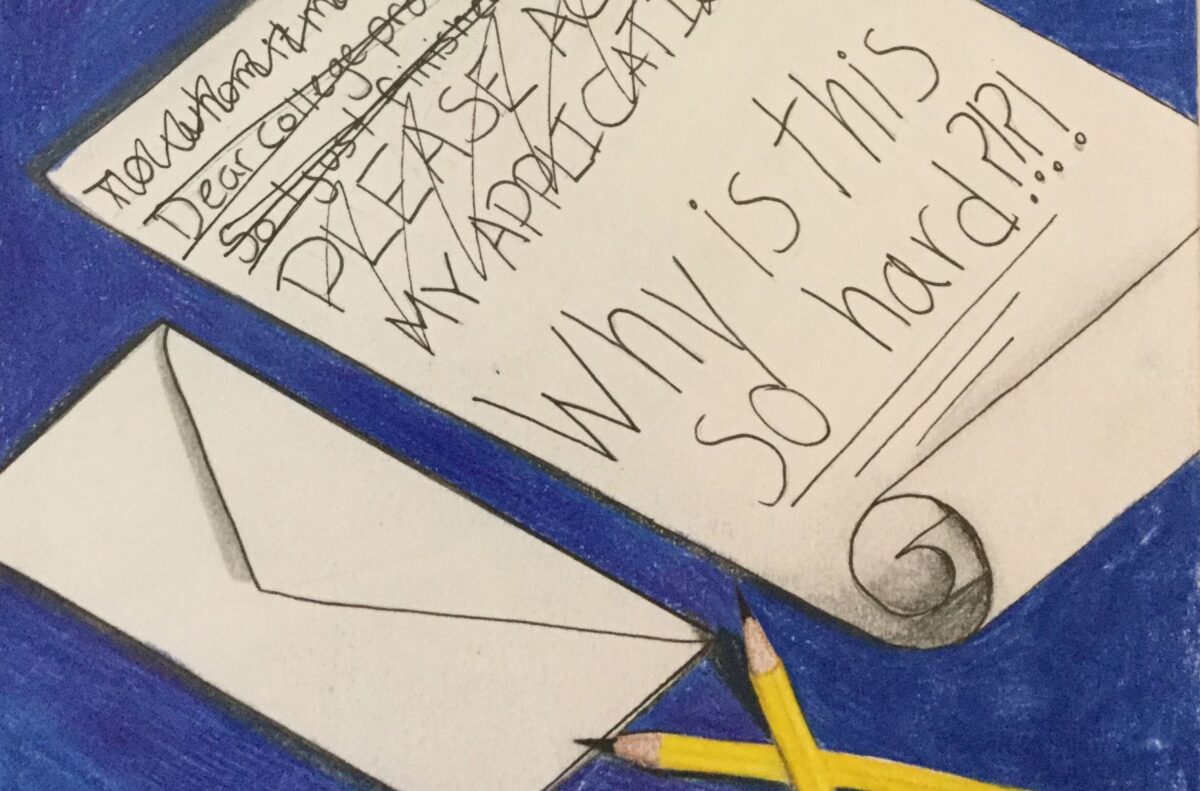 Dear college pro
So I just finishe
PLEASE AC
MY APPLICATI
Why is this
so hard?!?!